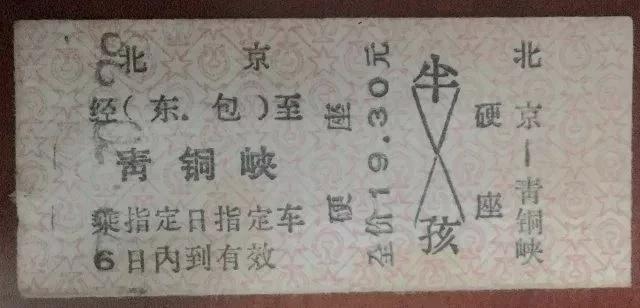 北京
经(东.包)至
青铜峡
乘指定日指定车
6日内到有效
硬座
全价19.30元
半
孩
硬座
北京—青铜峡